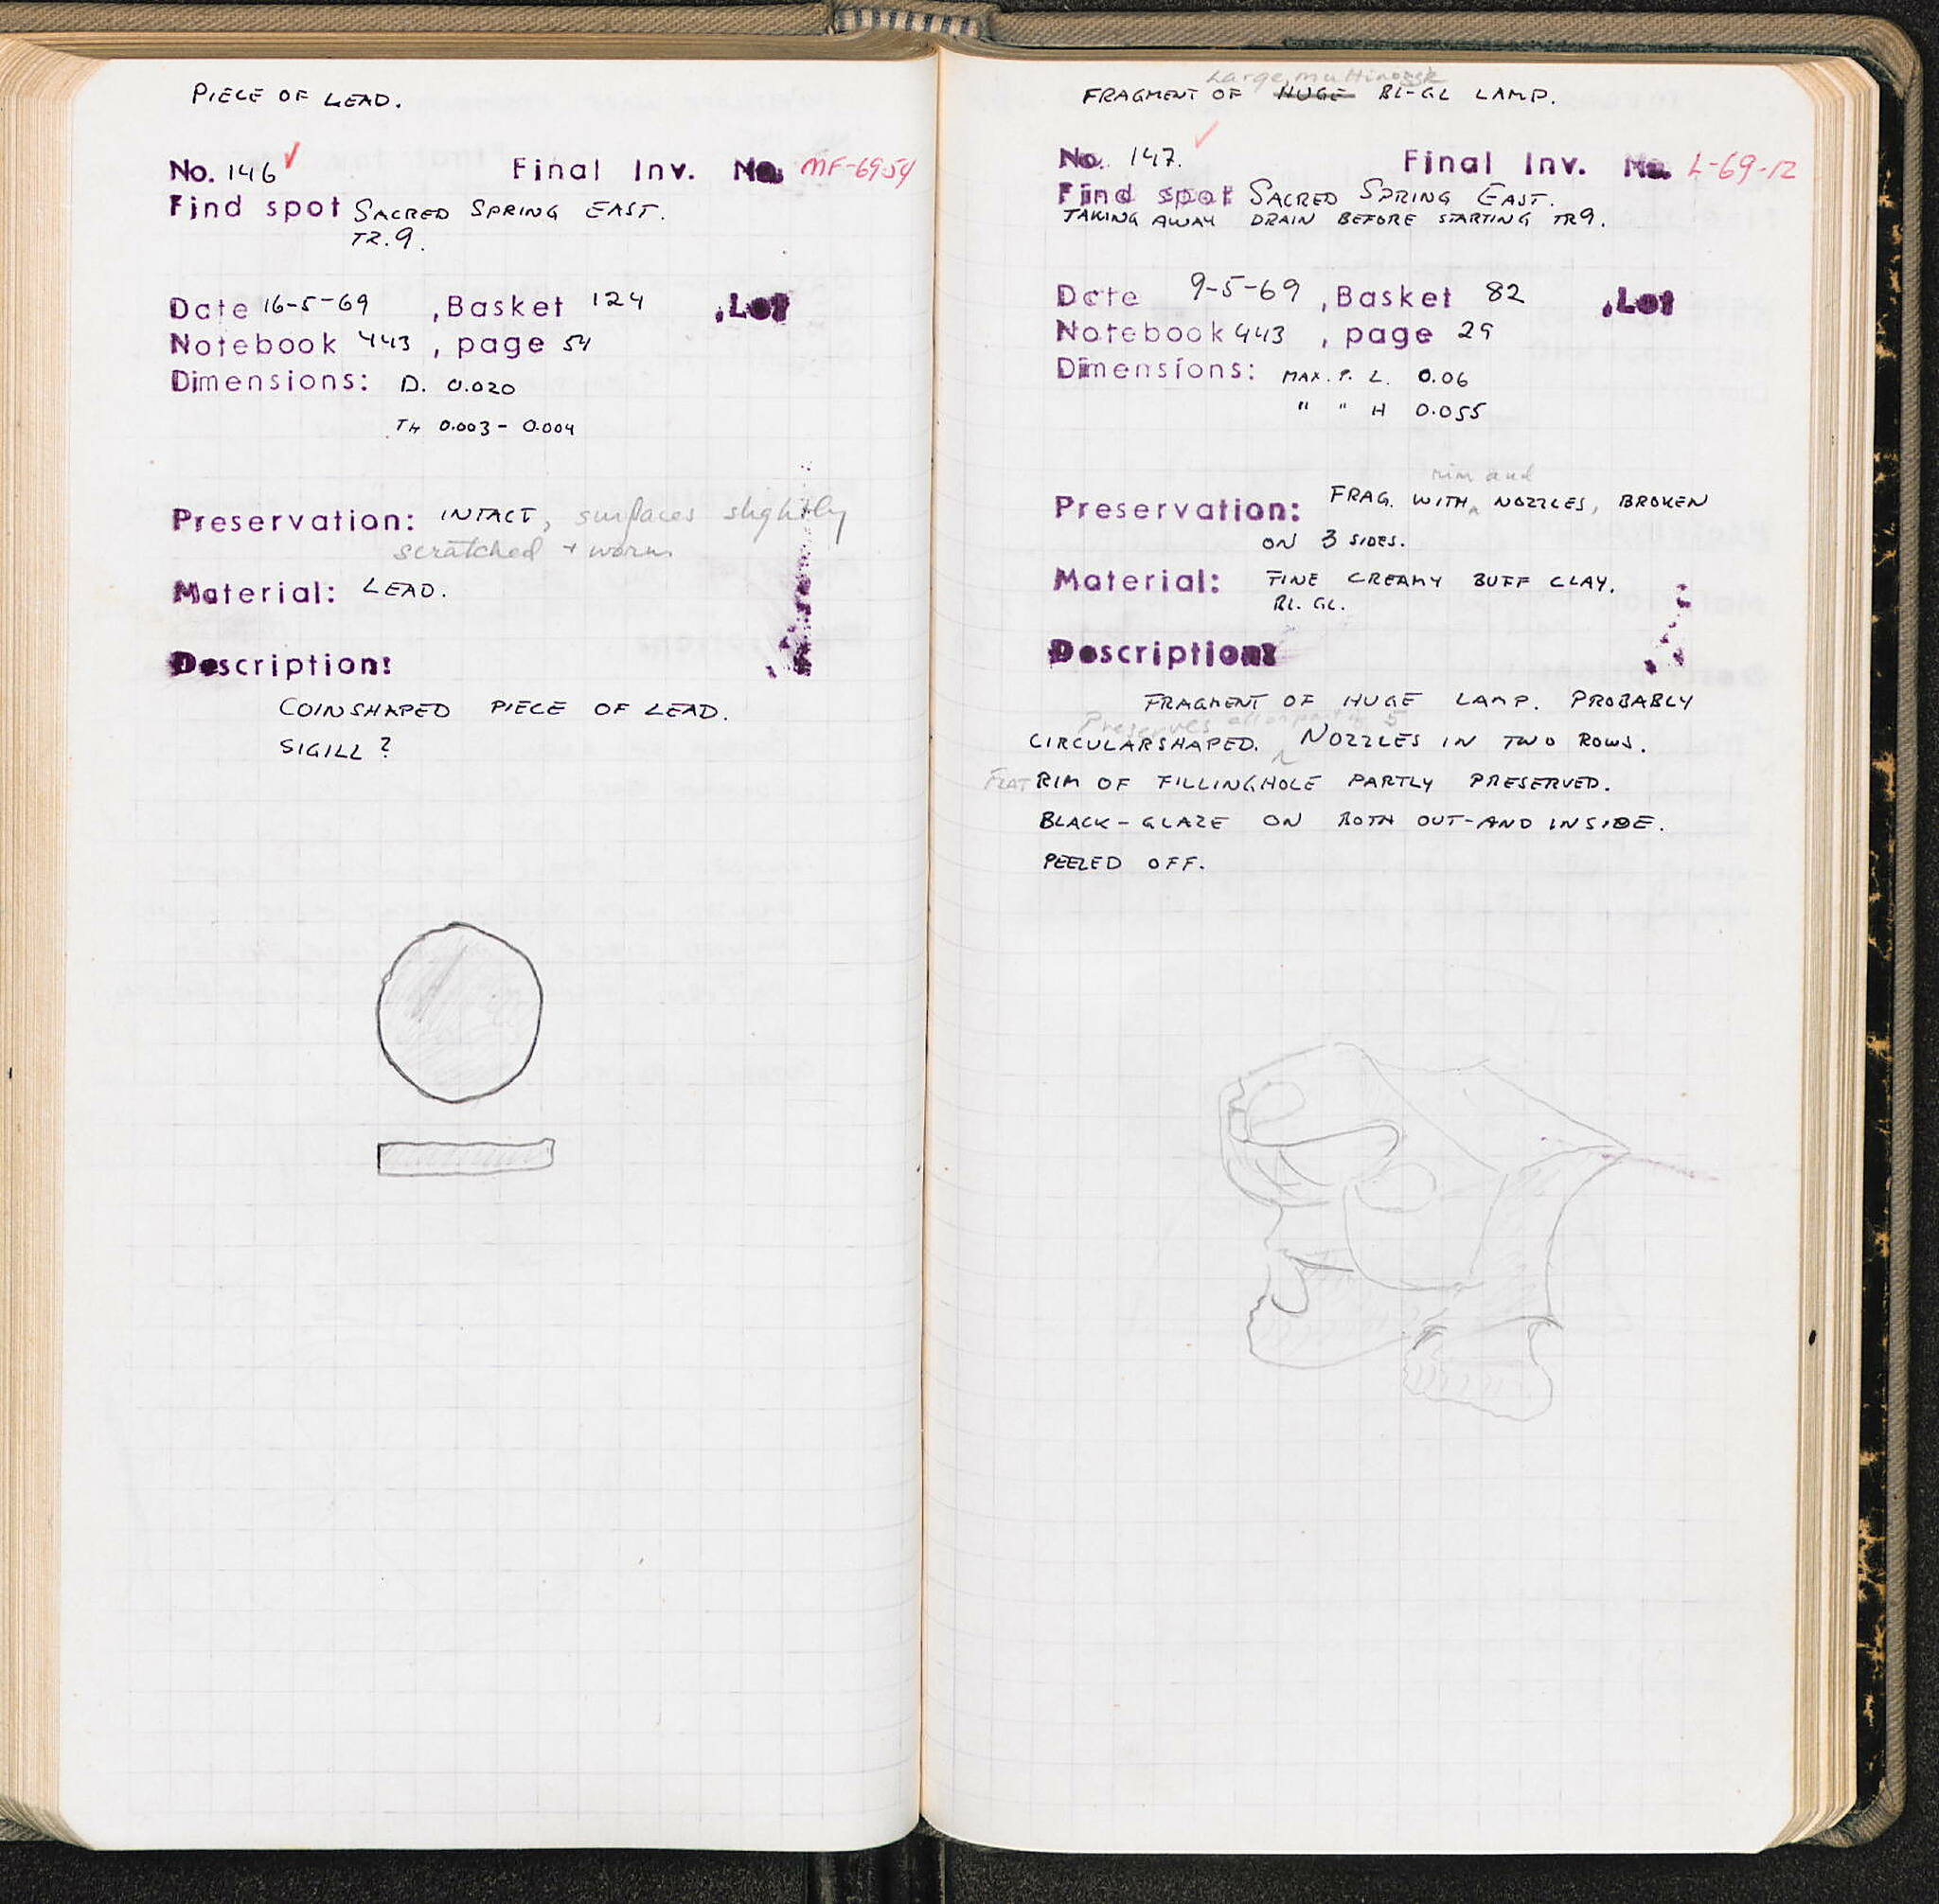 PIECE OF LEAD.
No. 146 ✓ Final Inv. No. MF-69-54
Find spot SACRED SPRING EAST.
TR. 9.
Date 16-5-69 , Basket 124 , Lot
Notebook 443 , page 54
Dimensions: D. 0.020
TH 0.003 - 0.004
Preservation: INTACT, surfaces slightly
scratched + worn
Material: LEAD.
Description:
COINSHAPED PIECE OF LEAD.
SIGILL ?
Large, multinozzle
FRAGMENT OF HUGE BL-GL LAMP.
No. 147. ✓ Final Inv. No. L-69-12
Find spot SACRED SPRING EAST.
TAKING AWAY DRAIN BEFORE STARTING TR9.
Date 9-5-69 , Basket 82 , Lot
Notebook 443 , page 29
Dimensions: MAX. P. L. 0.06
" " H 0.055
rim and
Preservation: FRAG. WITH NOZZLES, BROKEN
ON 3 SIDES.
Material: FINE CREAMY BUFF CLAY.
BL. GL.
Description:
FRAGMENT OF HUGE LAMP. PROBABLY
Preserves all or part of 5
CIRCULARSHAPED. NOZZLES IN TWO ROWS.
FLAT RIM OF FILLINGHOLE PARTLY PRESERVED.
BLACK-GLAZE ON BOTH OUT-AND INSIDE.
PEELED OFF.